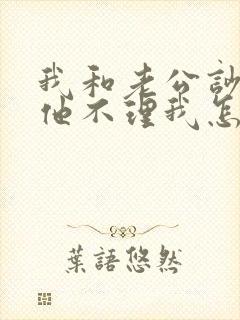 我和老公訪
他不理我怎
葉語悠然